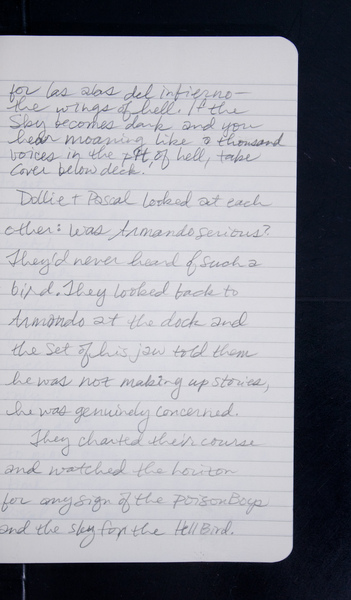 for las alas del infierno —
the wings of hell. If the
Sky becomes dark and you
hear moaning like a thousand
voices in the pit, of hell, take
cover below deck.
Dollie + Pascal looked at each
other: was Armando serious?
They'd never heard of such a
bird. They looked back to
Armando at the dock and
the set of his jaw told them
he was not making up stories,
he was genuinely concerned.
They charted their course
and watched the horizon
for any sign of the Poison Boys
and the sky for the Hell Bird.